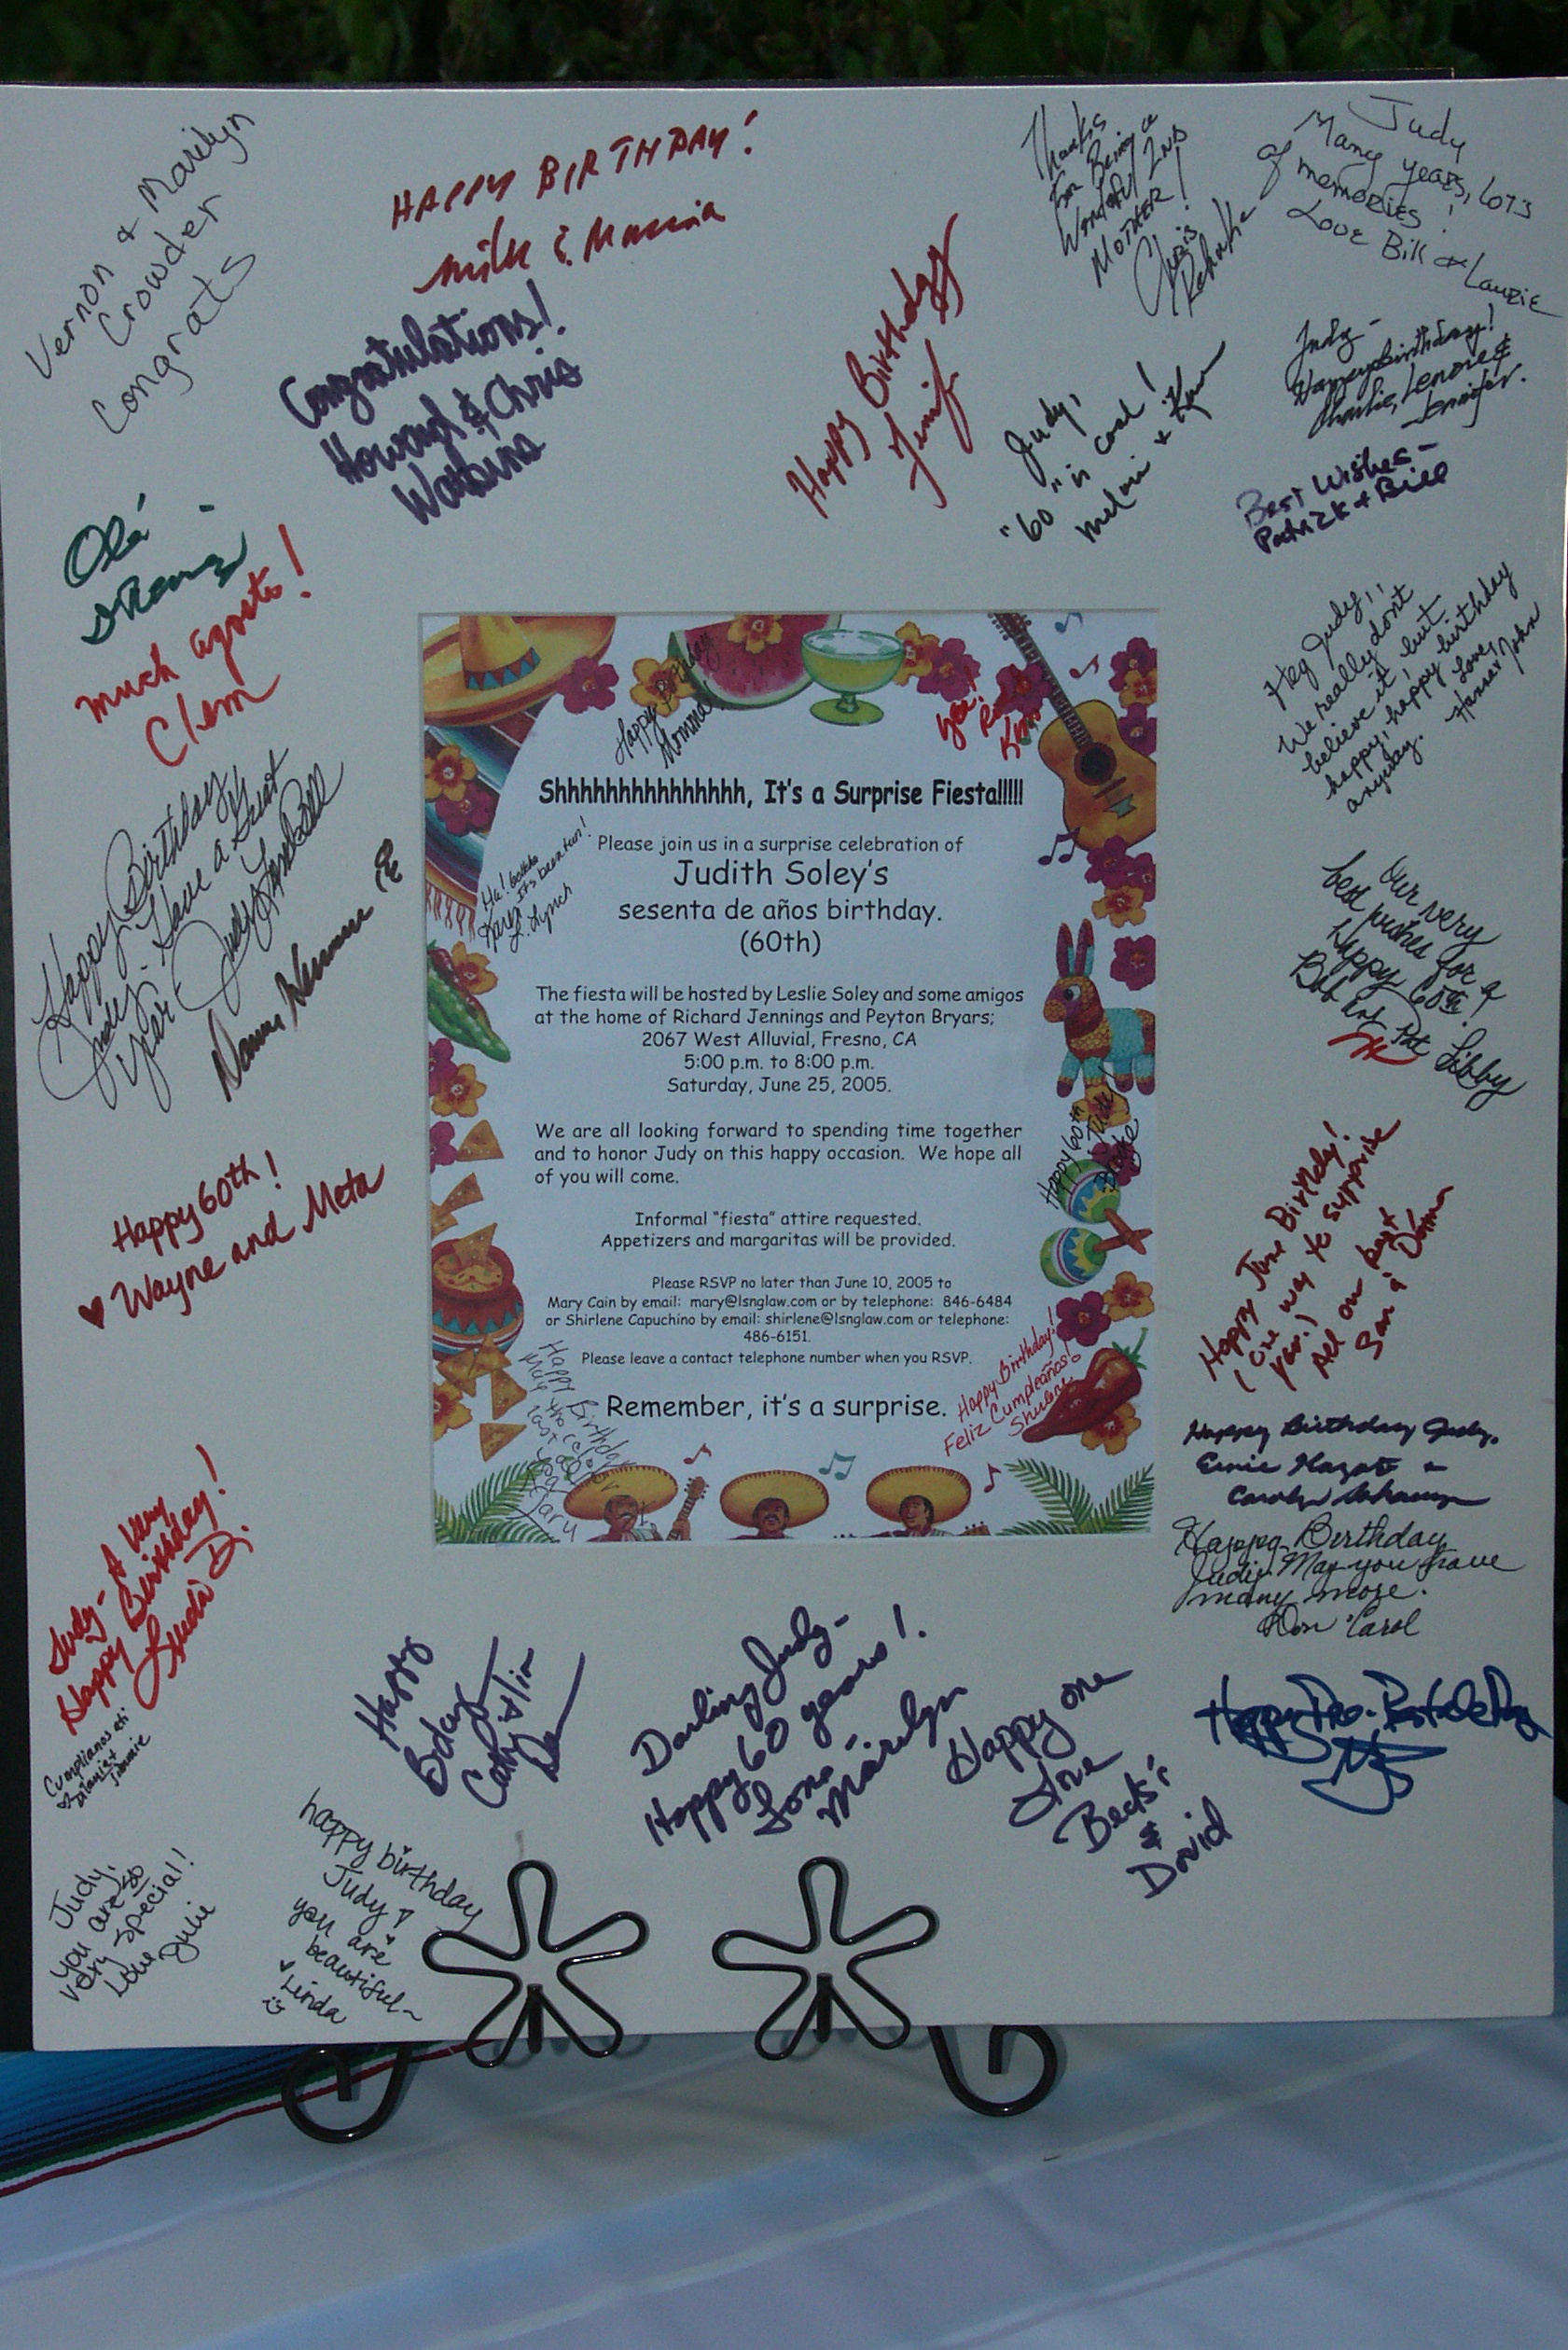 Vernon & Marilyn
Crowder
Congrats
HAPPY BIRTHDAY!
Congratulations!
Howard & Chris
Watkins
Happy Birthday
Thanks
For Being a
Wonderful 2nd
MOTHER!
Chris
Judy
Many years, lots
of memories!
Love Bill & Laurie
Judy,
"60" is cool!
Judy-
Happy Birthday!
Charlie, Lenore &
Jennifer.
Best Wishes-
Patrick & Bill
Olé
much agosto!
Clem
Hey Judy,!
We really don't
believe it, but
happy, happy birthday
anyway. Love,
John
Happy Birthday
Judy. Have a great
year
Judy
Our very
best wishes for a
Happy 60th!
Bob and Pat Libby
Happy 60th!
♥ Wayne and Meta
Happy June Birthday!
Happy Birthday Judy,
Ernie &
Carolyn
Happy Birthday
Judy. May you have
many more.
Don Carol
Judy- A Very
Happy Birthday!
Linda D.
Happy
Bday
Darling Judy-
Happy 60 years!
Marilyn
Happy one
Love
&
David
Judy,
you are so
very special!
Love Julie
happy birthday
Judy
you are
beautiful~
♥ Linda
Happy Birthday
Momma
Shhhhhhhhhhhhhhh, It's a Surprise Fiesta!!!!!
Please join us in a surprise celebration of
Judith Soley's
sesenta de años birthday.
(60th)
Ha! gotcha
It's been fun!
Karen
L. Lynch
The fiesta will be hosted by Leslie Soley and some amigos
at the home of Richard Jennings and Peyton Bryars;
2067 West Alluvial, Fresno, CA
5:00 p.m. to 8:00 p.m.
Saturday, June 25, 2005.
We are all looking forward to spending time together
and to honor Judy on this happy occasion. We hope all
of you will come.
Happy 60th
Informal "fiesta" attire requested.
Appetizers and margaritas will be provided.
Please RSVP no later than June 10, 2005 to
Mary Cain by email: mary@lsnglaw.com or by telephone: 846-6484
or Shirlene Capuchino by email: shirlene@lsnglaw.com or telephone:
486-6151.
Please leave a contact telephone number when you RSVP.
Remember, it's a surprise.
Happy Birthday!
Feliz Cumpleaños!
Happy Birthday